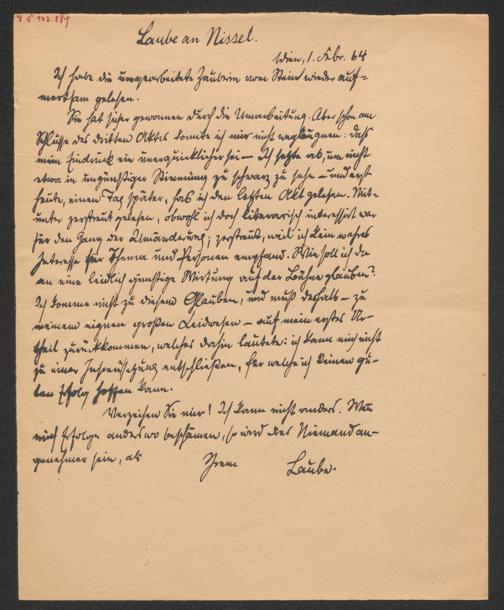 I. N. 142.889
Laube an Nissel.
Wien, 1. Febr. 64
Ich habe die umgearbeitete Zauberin vom Stein wieder auf-
merksam gelesen.
Sie hat sicher gewonnen durch die Umarbeitung. Aber schon am
Schlusse des dritten Aktes konnte ich mir nicht wegläugnen: daß
mein Eindruck ein unerquicklicher sei – Ich setzte ab, um nicht
etwa in ungünstiger Stimmung zu schwarz zu sehe – und erst
heute, einen Tag später, hab ich den letzten Akt gelesen. Mit-
unter zerstreut gelesen, obwohl ich doch literarisch interessirt war
für den Gang der Umänderung; zerstreut, weil ich kein wahres
Interesse für Thema und Personen empfand. Wie soll ich da
an eine leidlich günstige Wirkung auf der Bühne glauben?
Ich komme nicht zu diesem Glauben, und muß deshalb – zu
meinem eignen großen Leidwesen – auf mein erstes Ur-
theil zurückkommen, welches dahin lautete: ich kann mich nicht
zu einer Inscenesetzung entschließen, für welche ich keinen gu-
ten Erfolg hoffen kann.
Verzeihen Sie mir! Ich kann nicht anders. Wenn
mich Erfolge anderswo beschämen, so wird das Niemand an-
genehmer sein, als
Ihrem Laube.